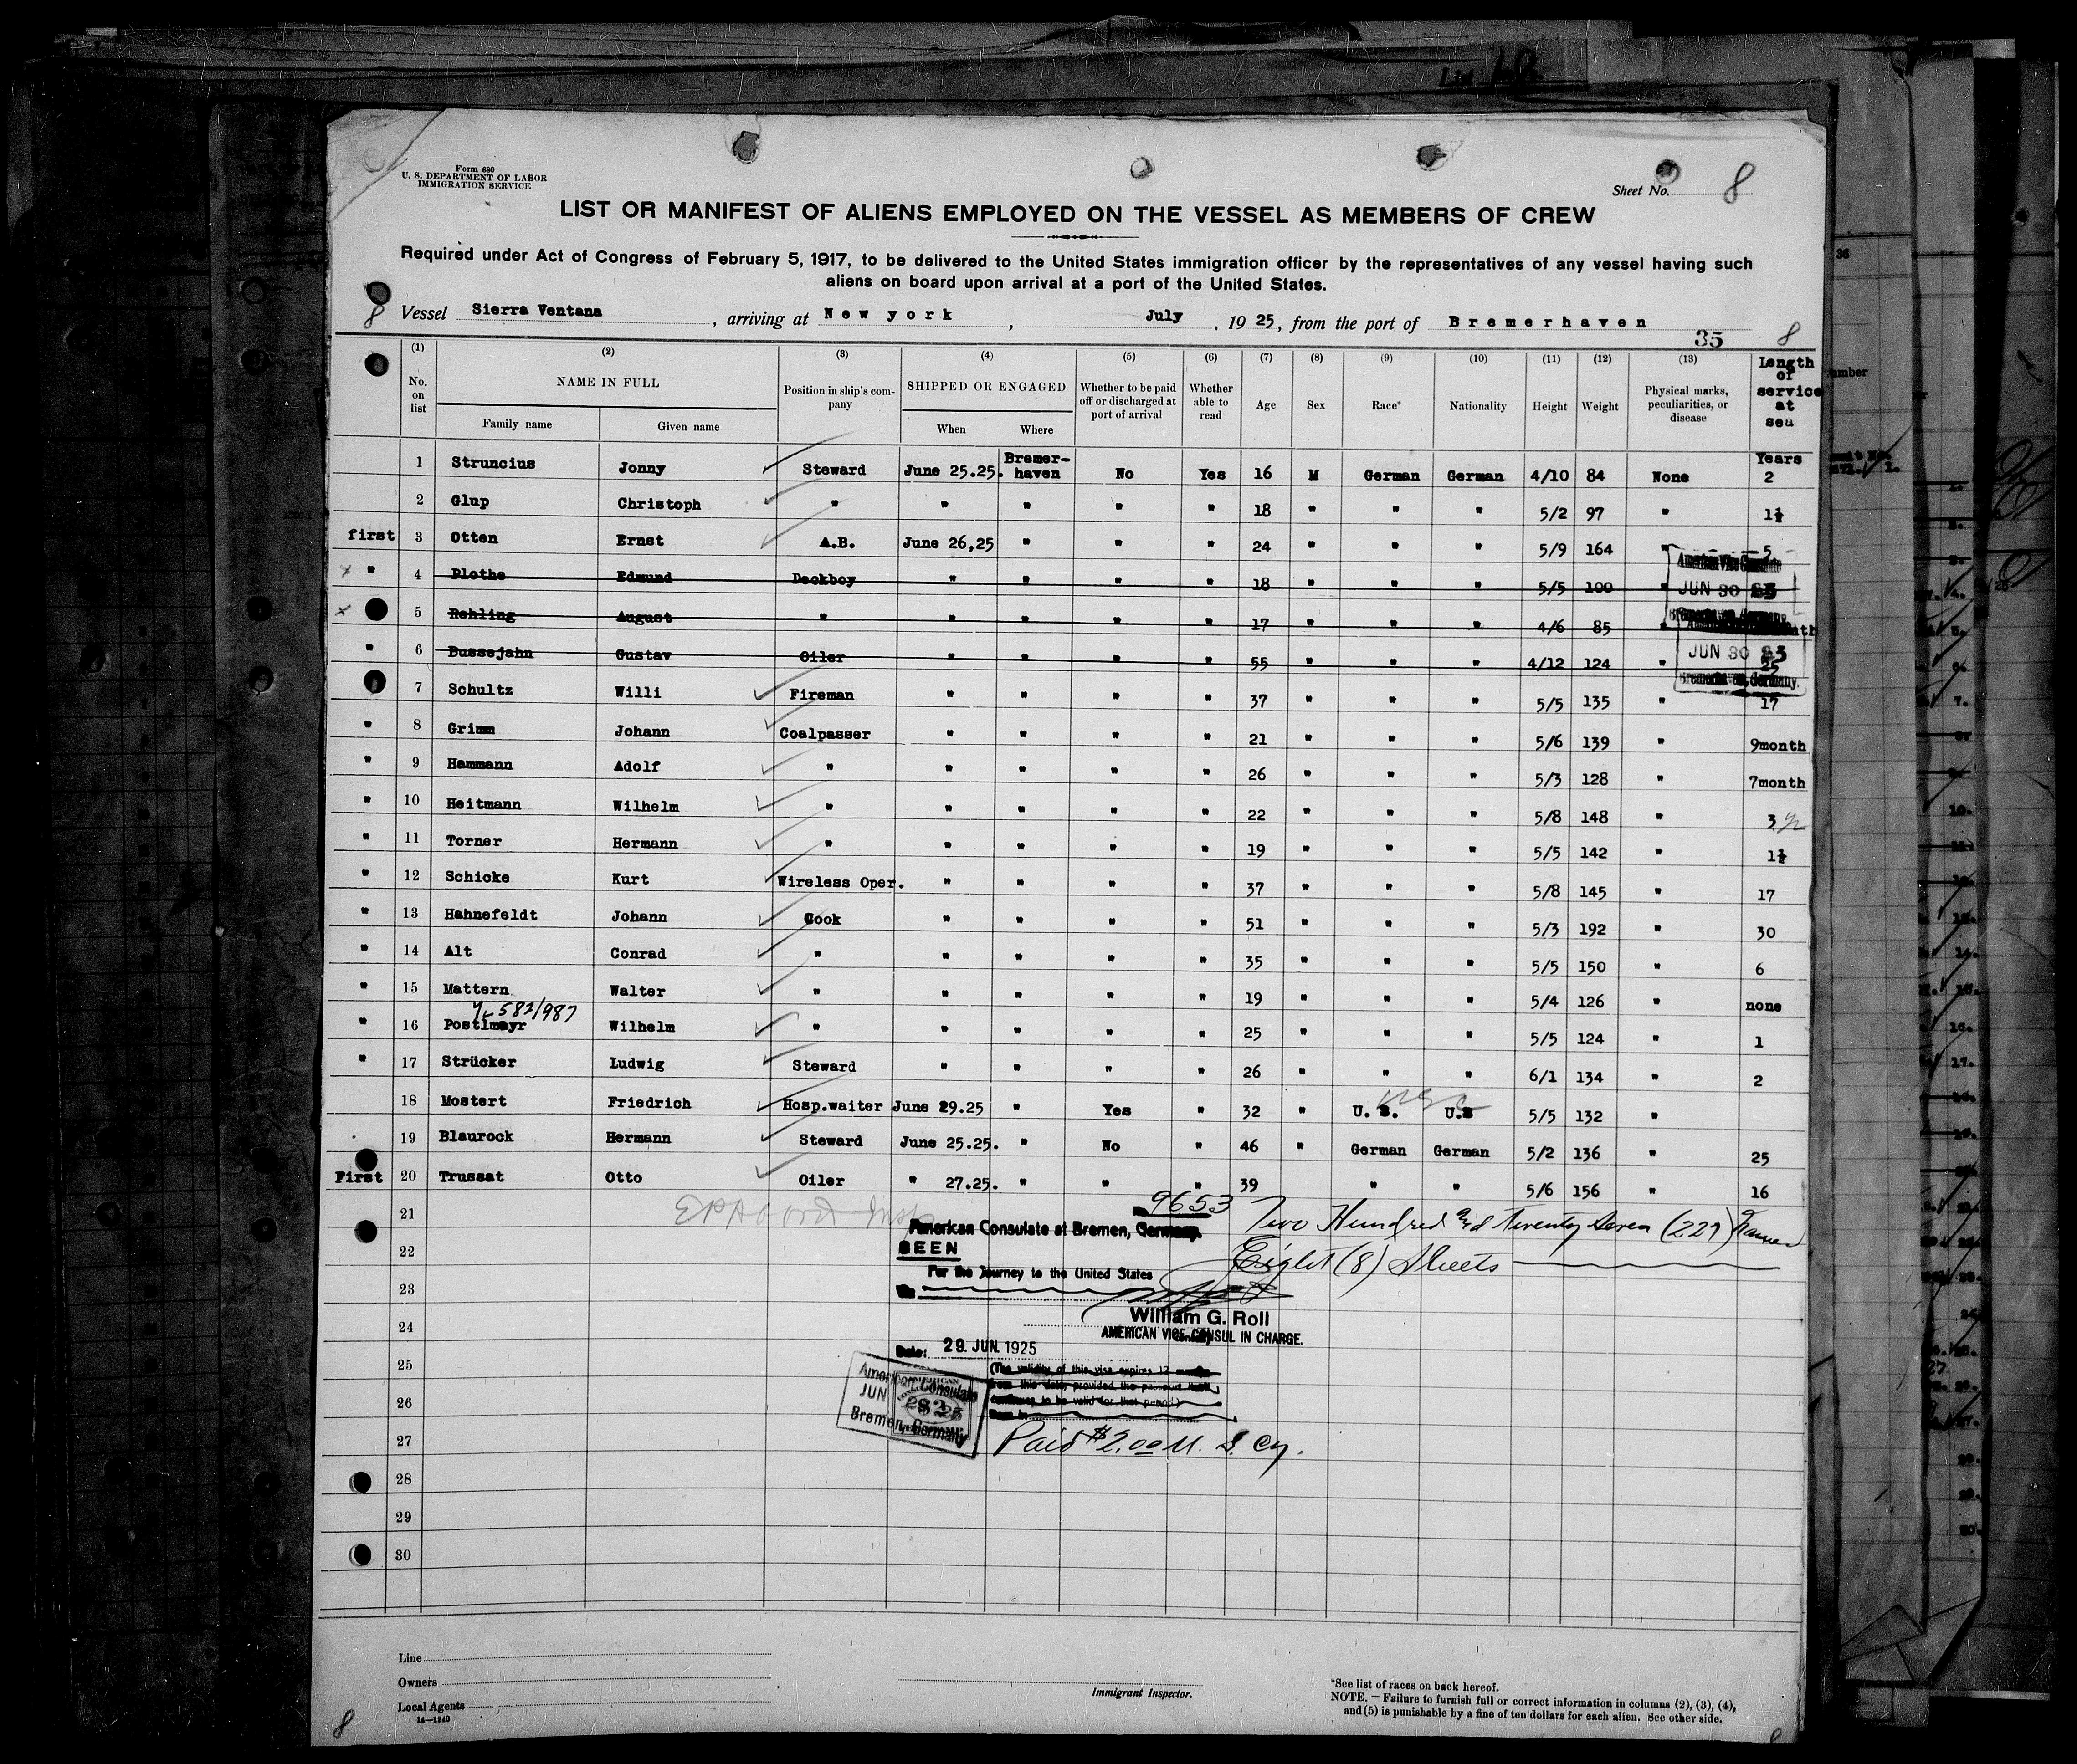 Form 680
U. S. DEPARTMENT OF LABOR
IMMIGRATION SERVICE
Sheet No. 8
LIST OR MANIFEST OF ALIENS EMPLOYED ON THE VESSEL AS MEMBERS OF CREW
Required under Act of Congress of February 5, 1917, to be delivered to the United States immigration officer by the representatives of any vessel having such
aliens on board upon arrival at a port of the United States.
8 Vessel Sierra Ventana , arriving at New york , July , 19 25, from the port of Bremerhaven
35 8
(1) (2) (3) (4) (5) (6) (7) (8) (9) (10) (11) (12) (13)
No. on list NAME IN FULL Family name Given name Position in ship's company SHIPPED OR ENGAGED When Where Whether to be paid off or discharged at port of arrival Whether able to read Age Sex Race* Nationality Height Weight Physical marks, peculiarities, or disease Length of service at sea
Years
1 Struncius Jonny Steward June 25.25. Bremer-haven No Yes 16 M German German 4/10 84 None 2
2 Glup Christoph " " " " " 18 " " " 5/2 97 " 1½
first 3 Otten Ernst A.B. June 26,25 " " " 24 " " " 5/9 164 " 5
x " 4 Plothe Edmund Deckboy " " " " 18 " " " 5/5 100 "
x 5 Rehling August " " " " " 17 " " " 4/6 85 "
" 6 Bussejahn Gustav Oiler " " " " 55 " " " 4/12 124 " 25
7 Schultz Willi Fireman " " " " 37 " " " 5/5 135 " 17
" 8 Grimm Johann Coalpasser " " " " 21 " " " 5/6 139 " 9month
" 9 Hammann Adolf " " " " " 26 " " " 5/3 128 " 7month
" 10 Heitmann Wilhelm " " " " " 22 " " " 5/8 148 " 3
" 11 Torner Hermann " " " " " 19 " " " 5/5 142 " 1½
" 12 Schicke Kurt Wireless Oper. " " " " 37 " " " 5/8 145 " 17
" 13 Hahnefeldt Johann Cook " " " " 51 " " " 5/3 192 " 30
" 14 Alt Conrad " " " " " 35 " " " 5/5 150 " 6
" 15 Mattern Walter " " " " " 19 " " " 5/4 126 " none
582/987
" 16 Postlmayr Wilhelm " " " " " 25 " " " 5/5 124 " 1
" 17 Strücker Ludwig Steward " " " " 26 " " " 6/1 134 " 2
18 Mostert Friedrich Hosp.waiter June 29.25 " Yes " 32 " U.S. U.S 5/5 132 "
19 Blaurock Hermann Steward June 25.25. " No " 46 " German German 5/2 136 " 25
First 20 Trussat Otto Oiler " 27.25. " " " 39 " " 5/6 156 " 16
American Vice Consulate
JUN 30 25
Bremerhaven, Germany.
JUN 30 25
Bremerhaven, Germany.
21
22
23
24
25
26
27
28
29
30
9653
Two Hundred and Twenty Seven (227) Names
Eight (8) Sheets
American Consulate at Bremen, Germany.
SEEN
For the Journey to the United States
William G. Roll
AMERICAN VICE CONSUL IN CHARGE.
Date: 29. JUN. 1925
(The validity of this visa expires 12 months
from this date, provided the passport
continues to be valid for that period)
American Consulate
JUN
Bremen, Germany
Paid $2.00 U. S. Cy.
Line
Owners
Local Agents
14—1240
Immigrant Inspector.
*See list of races on back hereof.
NOTE. – Failure to furnish full or correct information in columns (2), (3), (4),
and (5) is punishable by a fine of ten dollars for each alien. See other side.
8